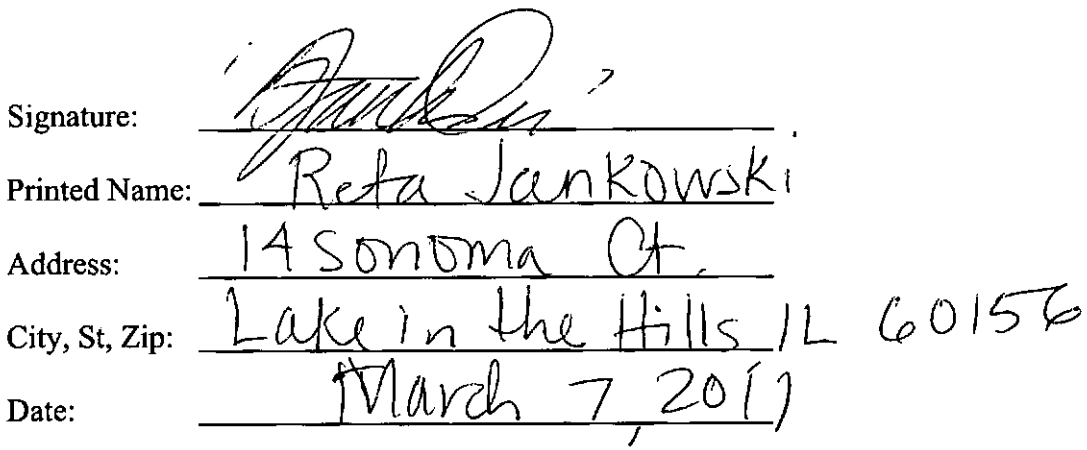 Signature:
Printed Name: Reta Jankowski
Address: 14 Sonoma Ct.
City, St, Zip: Lake in the Hills IL 60156
Date: March 7, 2011